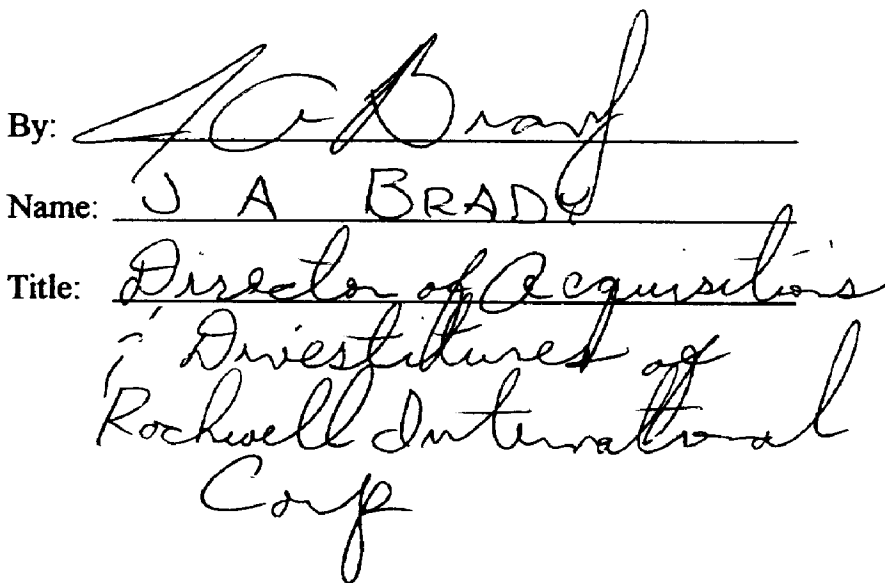 By: J A Brady
Name: J A BRADY
Title: Director of Acquisitions
& Divestitures of
Rockwell International
Corp